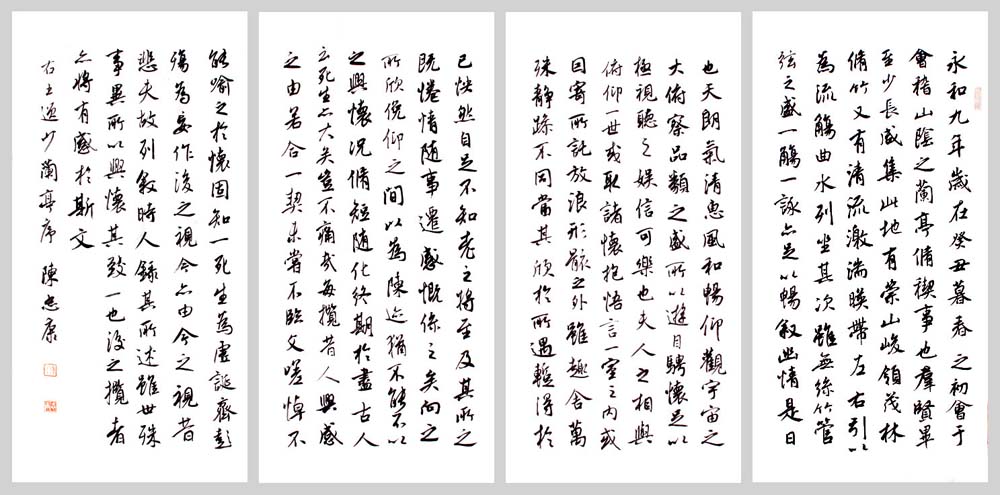 永和九年歲在癸丑暮春之初會于
會稽山陰之蘭亭脩禊事也羣賢畢
至少長咸集此地有崇山峻領茂林
脩竹又有清流激湍暎帶左右引以
為流觴曲水列坐其次雖無絲竹管
弦之盛一觴一詠亦足以暢敘幽情是日
也天朗氣清惠風和暢仰觀宇宙之
大俯察品類之盛所以遊目騁懷足以
極視聽之娛信可樂也夫人之相與
俯仰一世或取諸懷抱悟言一室之內或
因寄所託放浪形骸之外雖趣舍萬
殊靜躁不同當其欣於所遇蹔得於
己怏然自足不知老之將至及其所之
既惓情随事遷感慨係之矣向之
所欣俛仰之間以為陳迹猶不能不以
之興懷況脩短随化終期於盡古人
云死生亦大矣豈不痛哉每攬昔人興感
之由若合一契未嘗不臨文嗟悼不
能喻之於懷固知一死生為虛誕齊彭
殤為妄作後之視今亦由今之視昔
悲夫故列敘時人錄其所述雖世殊
事異所以興懷其致一也後之攬者
亦將有感於斯文
右王逸少蘭亭序 陳忠康